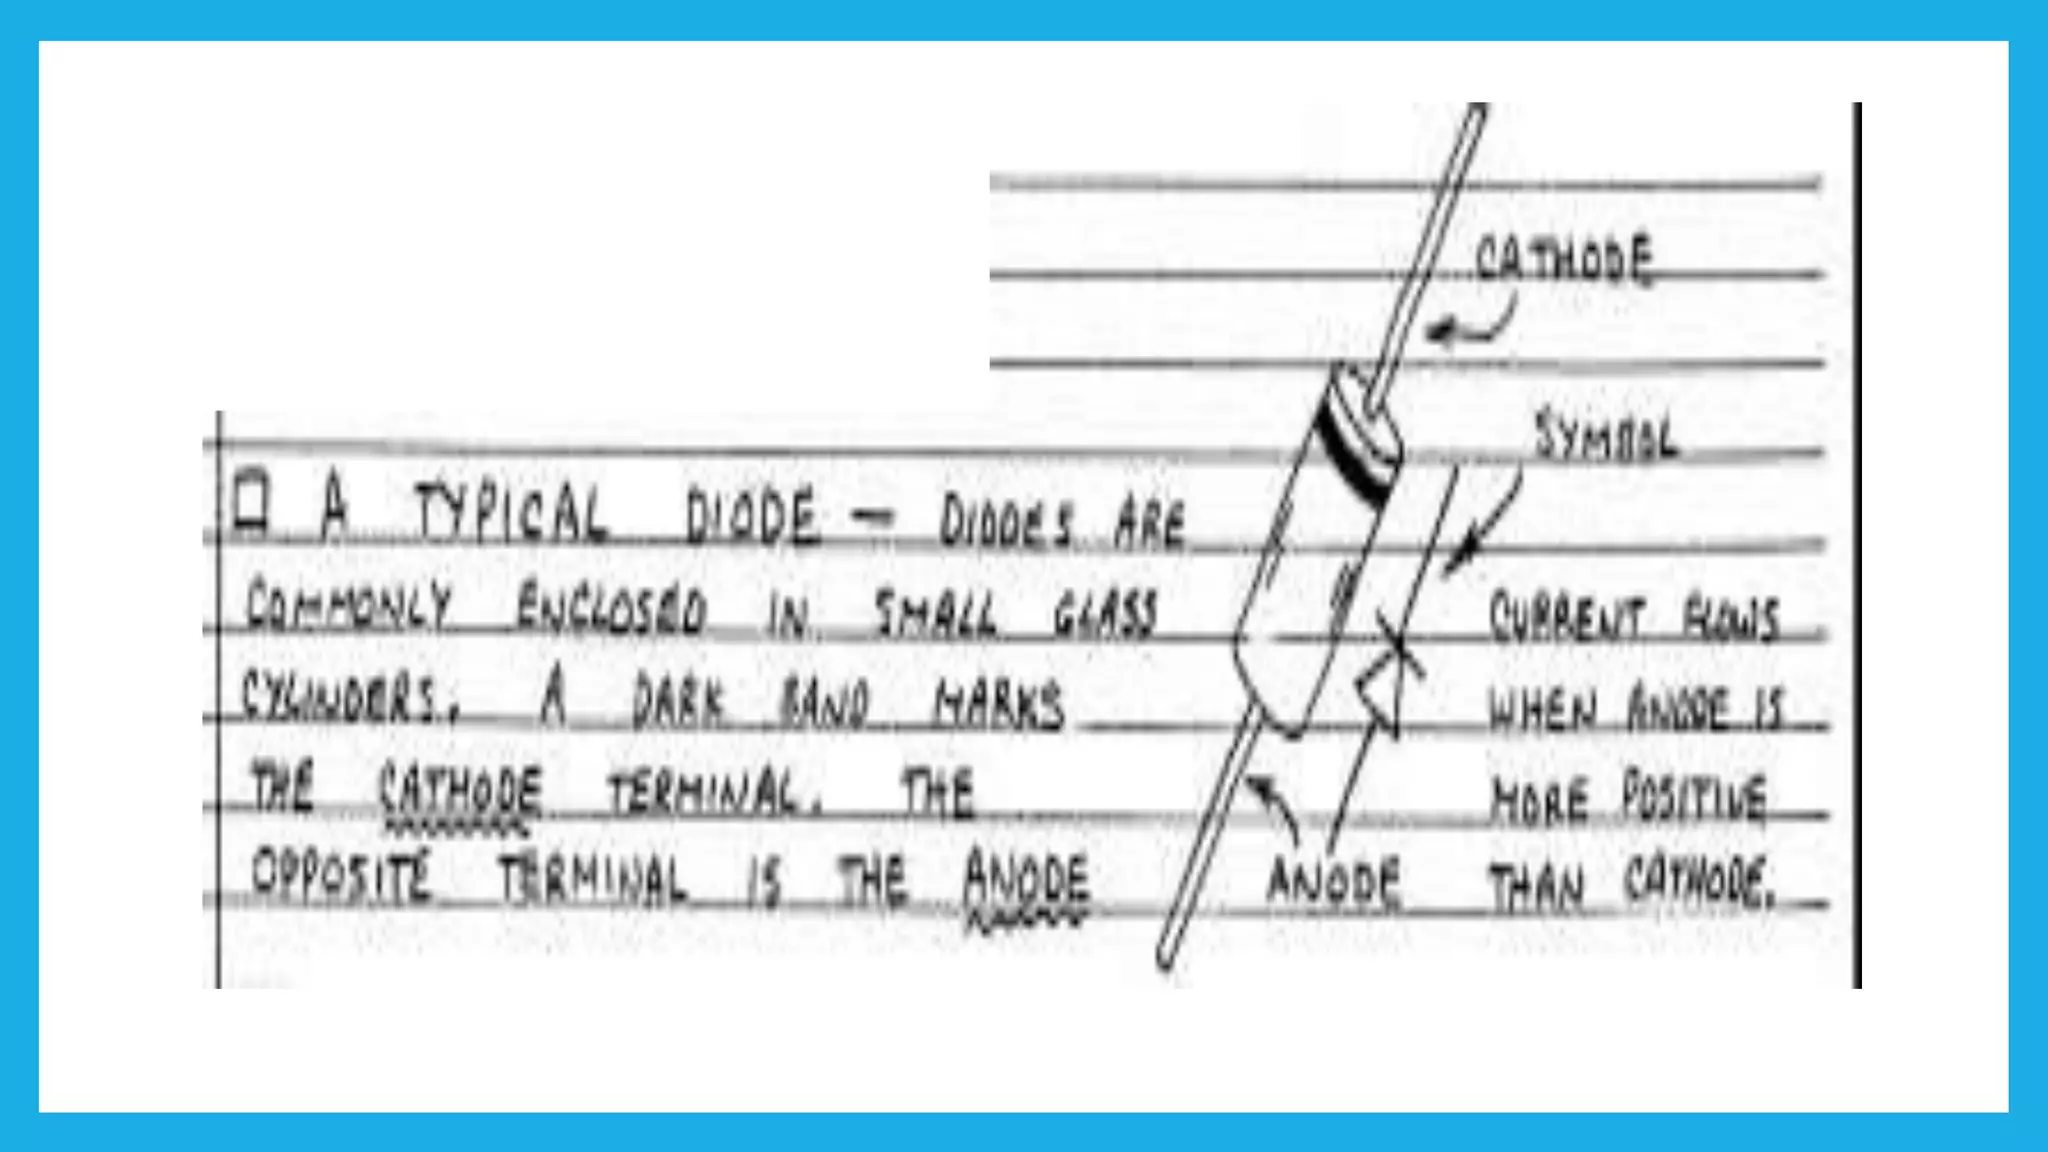 CATHODE
SYMBOL
□ A TYPICAL DIODE — DIODES ARE
COMMONLY ENCLOSED IN SMALL GLASS
CYLINDERS. A DARK BAND MARKS
THE CATHODE TERMINAL. THE
OPPOSITE TERMINAL IS THE ANODE
ANODE
CURRENT FLOWS
WHEN ANODE IS
MORE POSITIVE
THAN CATHODE.